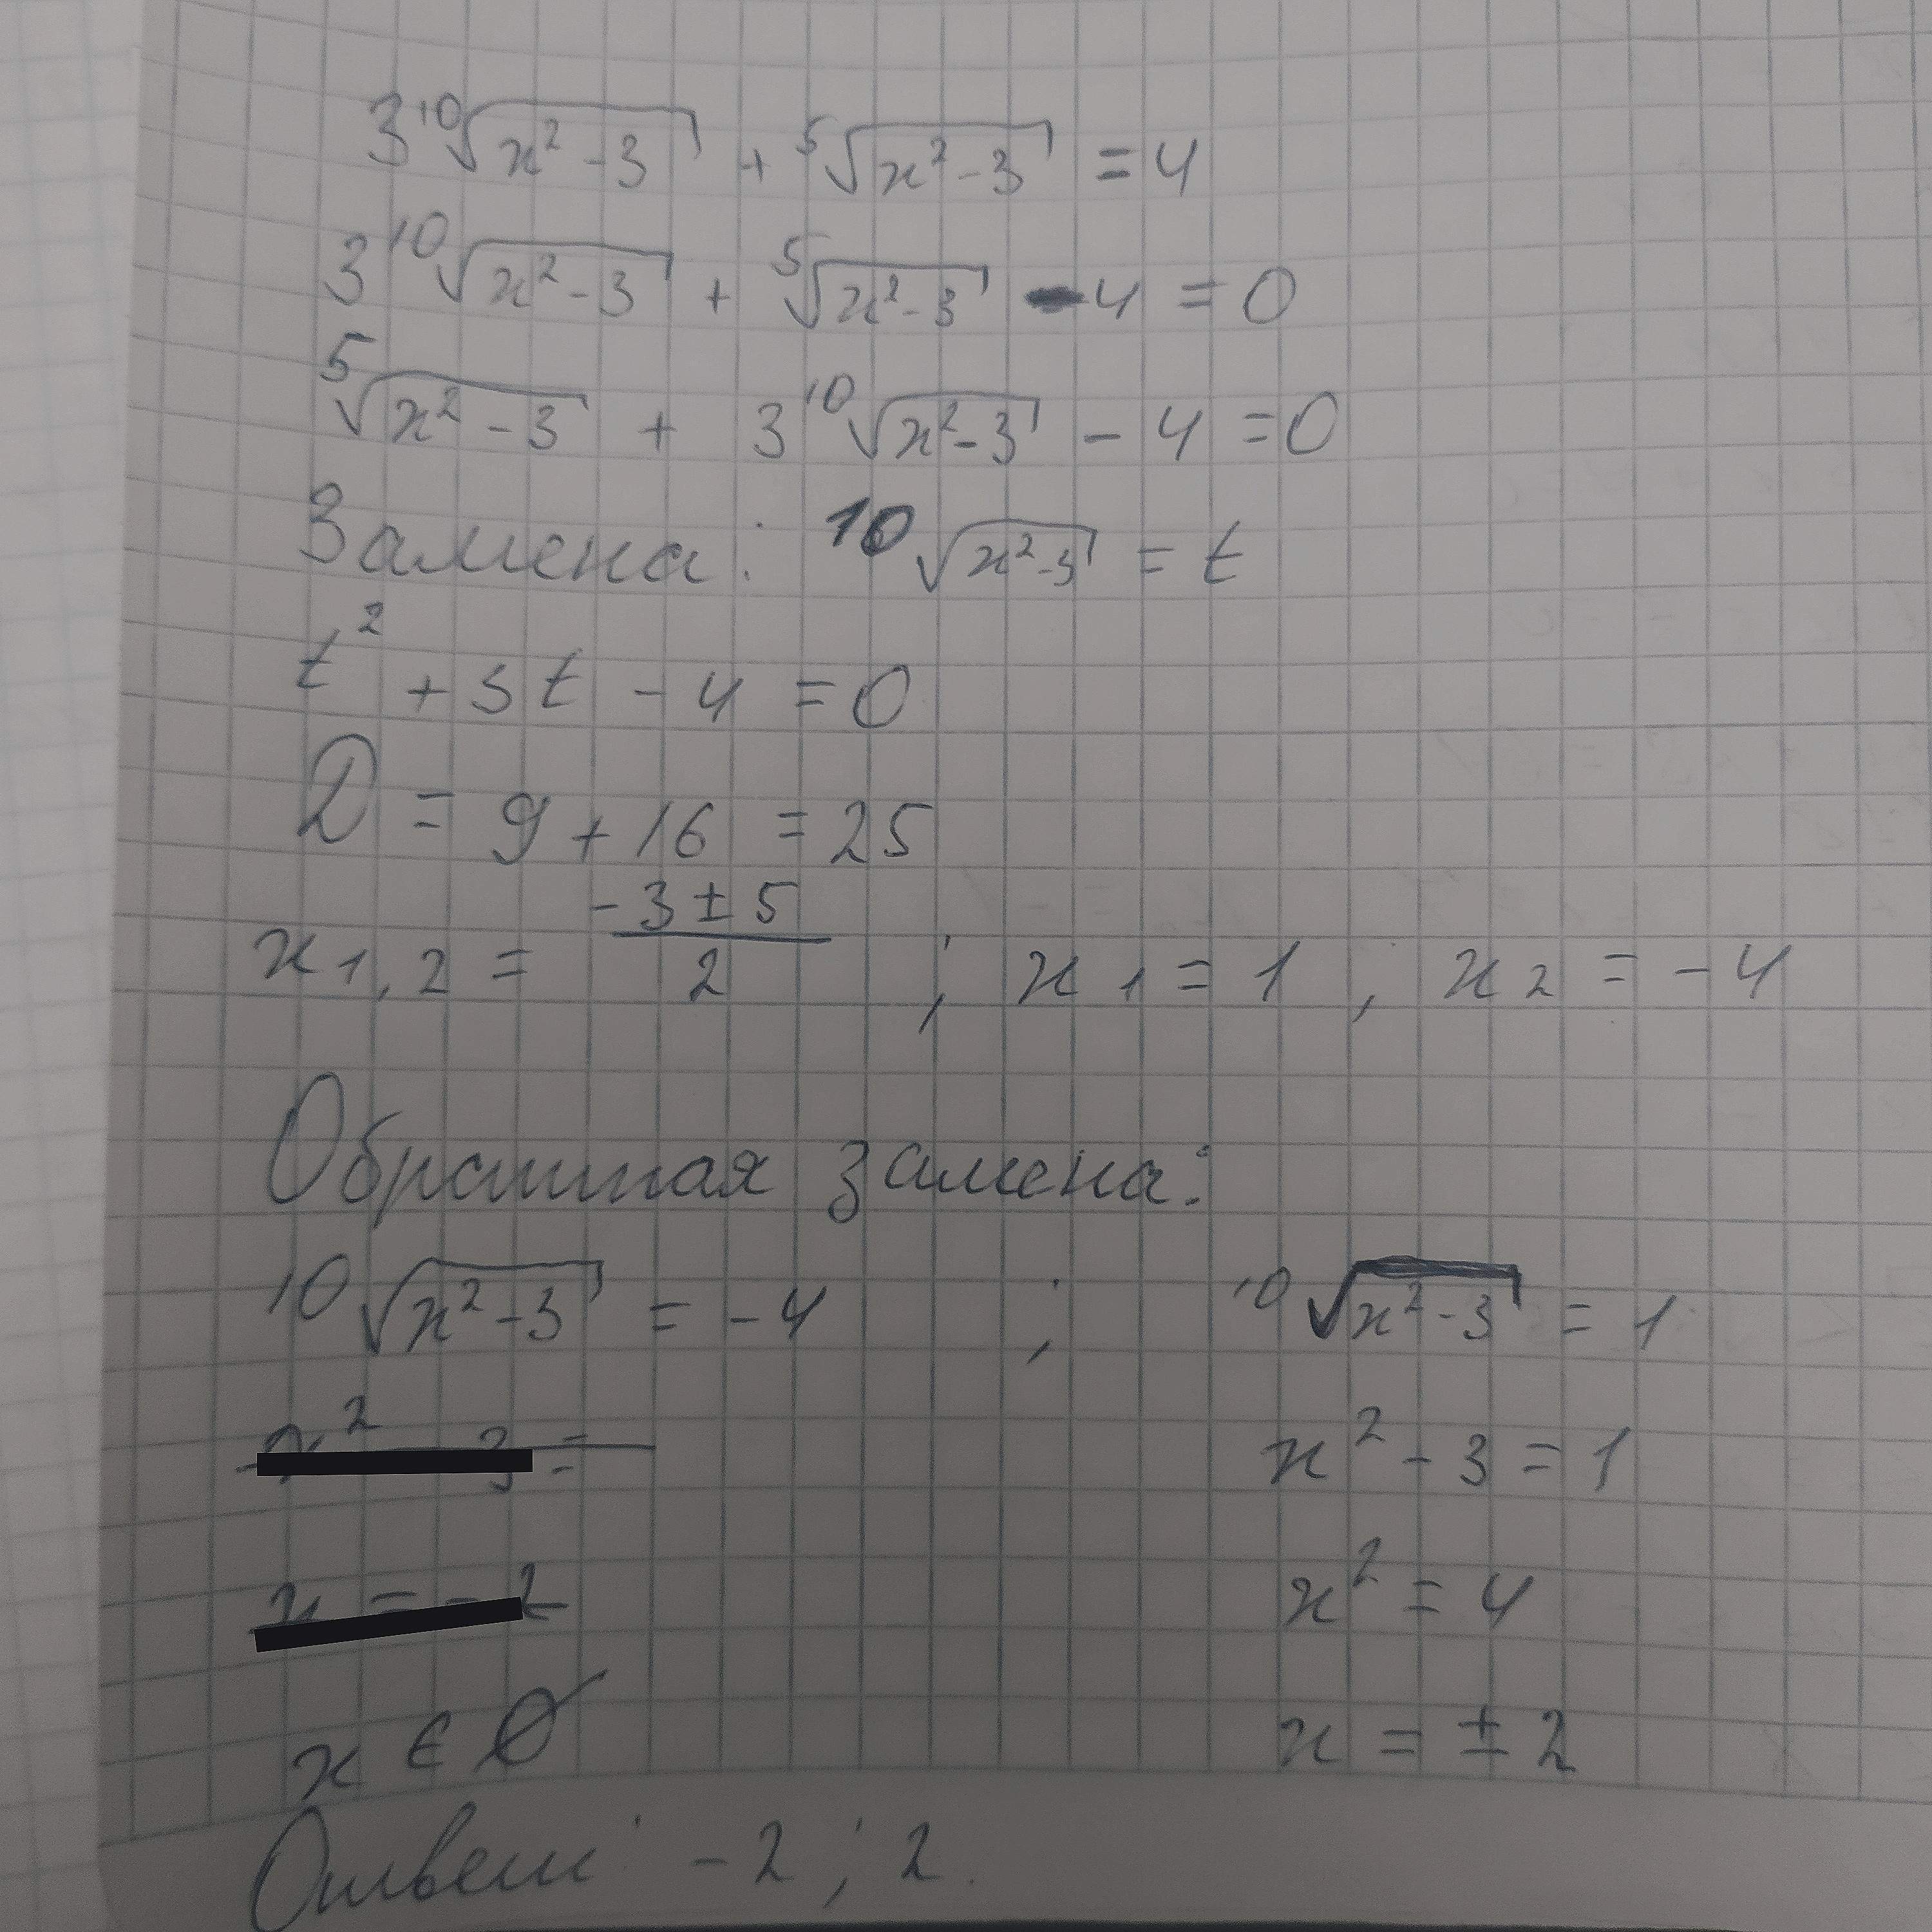 3 ¹⁰√(x² - 3) + ⁵√(x² - 3) = 4
3 ¹⁰√(x² - 3) + ⁵√(x² - 3) - 4 = 0
⁵√(x² - 3) + 3 ¹⁰√(x² - 3) - 4 = 0
Замена: ¹⁰√(x² - 3) = t
t² + 3t - 4 = 0
D = 9 + 16 = 25
x₁,₂ = (-3 ± 5)/2 ; x₁ = 1 ; x₂ = -4
Обратная замена:
¹⁰√(x² - 3) = -4 ; ¹⁰√(x² - 3) = 1
x² - 3 = 1
x² = 4
x ∈ ∅ x = ± 2
Ответ: -2 ; 2.